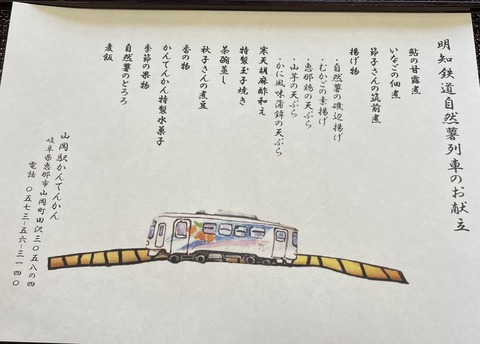 明知鉄道自然薯列車のお献立
鮎の甘露煮
いなごの佃煮
節子さんの筑前煮
揚げ物
・自然薯の磯辺揚げ
・むかごの素揚げ
・恵那鶏の天ぷら
・山芋の天ぷら
・かに風味蒲鉾の天ぷら
寒天胡麻酢和え
特製玉子焼き
茶碗蒸し
秋子さんの煮豆
香の物
かんてんかん特製水菓子
季節の果物
自然薯のとろろ
麦飯
山岡駅かんてんかん
岐阜県恵那市山岡町田沢三〇五八の四
電話 〇五七三-五六-三一四〇